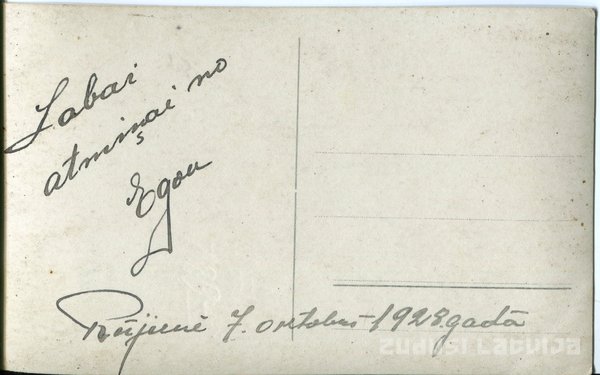 Labai
atmiņai no
Egon
Rūjienē 7. oktobrī 1928. gadā
zudusi Latvija